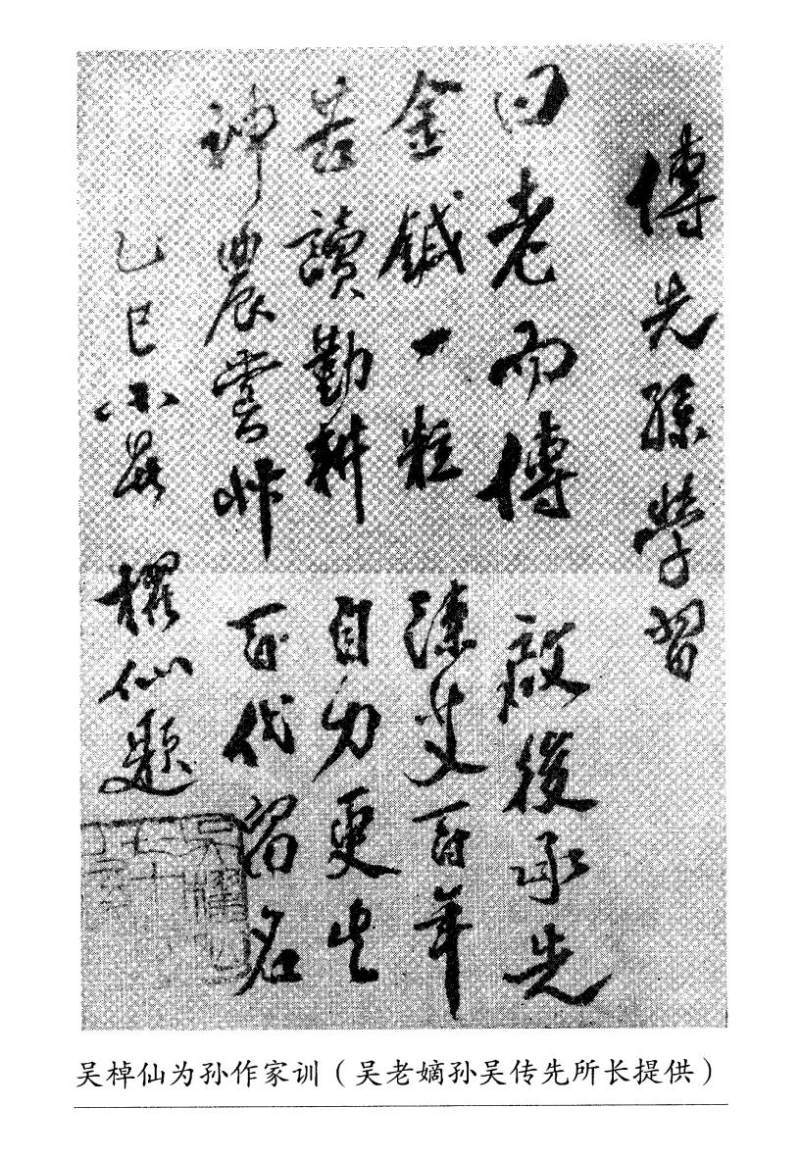 傳先孫學習
曰老而傳 啟後承先
金鍼一粒 陳艾百年
苦讀勤耕 自力更生
神農嘗艸 百代留名
乙巳小暑 櫂仙題
吴棹仙为孙作家训（吴老嫡孙吴传先所长提供）